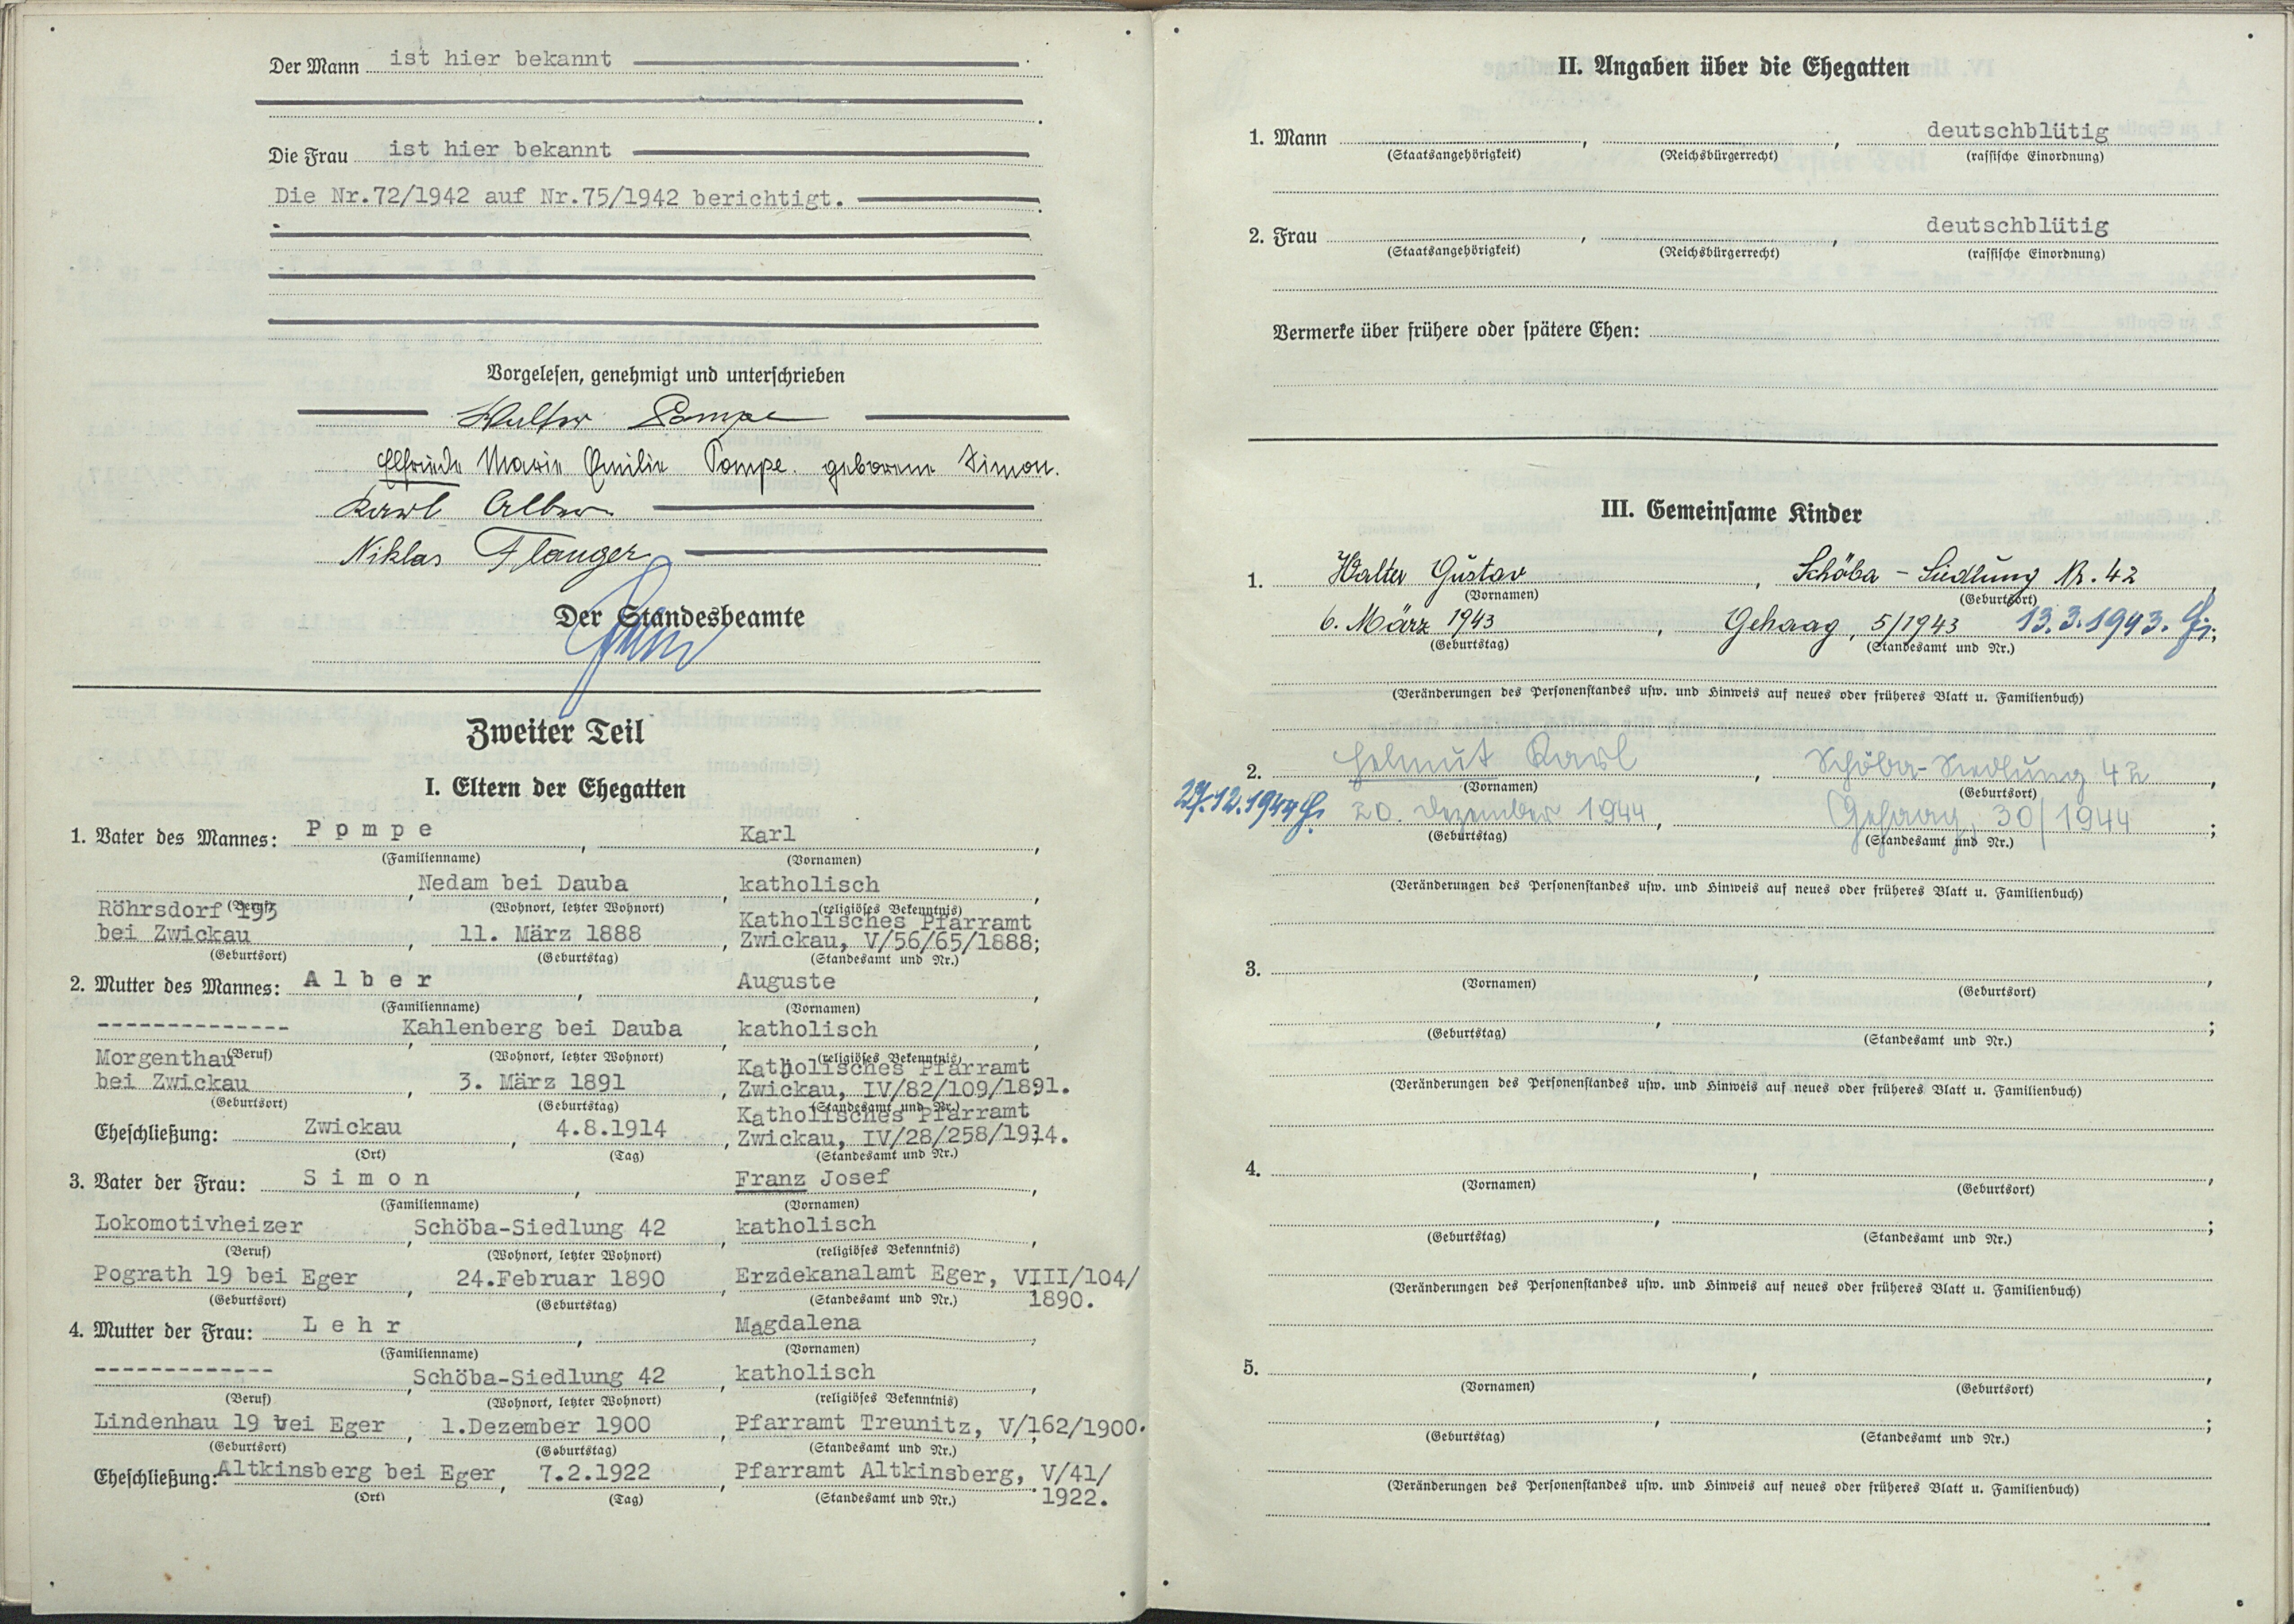 Der Mann ist hier bekannt
Die Frau ist hier bekannt
Die Nr.72/1942 auf Nr.75/1942 berichtigt.
Vorgelesen, genehmigt und unterschrieben
Walter Pompe
Elfriede Marie Emilie Pompe. geborene Simon.
Karl Alber
Niklas Flauger
Der Standesbeamte
Zweiter Teil
I. Eltern der Ehegatten
1. Vater des Mannes: Pompe, Karl,
(Familienname) (Vornamen)
, Nedam bei Dauba, katholisch,
(Beruf) (Wohnort, letzter Wohnort) (religiöses Bekenntnis)
Röhrsdorf 193 Katholisches Pfarramt
bei Zwickau, 11. März 1888, Zwickau, V/56/65/1888;
(Geburtsort) (Geburtstag) (Standesamt und Nr.)
2. Mutter des Mannes: Alber, Auguste,
(Familienname) (Vornamen)
--------------, Kahlenberg bei Dauba, katholisch,
(Beruf) (Wohnort, letzter Wohnort) (religiöses Bekenntnis)
Morgenthau Katholisches Pfarramt
bei Zwickau, 3. März 1891, Zwickau, IV/82/109/1891.
(Geburtsort) (Geburtstag) (Standesamt und Nr.)
Katholisches Pfarramt
Eheschließung: Zwickau, 4.8.1914, Zwickau, IV/28/258/1914.
(Ort) (Tag) (Standesamt und Nr.)
3. Vater der Frau: Simon, Franz Josef,
(Familienname) (Vornamen)
Lokomotivheizer, Schöba-Siedlung 42, katholisch,
(Beruf) (Wohnort, letzter Wohnort) (religiöses Bekenntnis)
Pograth 19 bei Eger, 24.Februar 1890, Erzdekanalamt Eger, VIII/104/
(Geburtsort) (Geburtstag) (Standesamt und Nr.) 1890.
4. Mutter der Frau: Lehr, Magdalena,
(Familienname) (Vornamen)
-------------, Schöba-Siedlung 42, katholisch,
(Beruf) (Wohnort, letzter Wohnort) (religiöses Bekenntnis)
Lindenhau 19 bei Eger, 1.Dezember 1900, Pfarramt Treunitz, V/162/1900.
(Geburtsort) (Geburtstag) (Standesamt und Nr.)
Eheschließung: Altkinsberg bei Eger, 7.2.1922, Pfarramt Altkinsberg, V/41/
(Ort) (Tag) (Standesamt und Nr.) 1922.
II. Angaben über die Ehegatten
1. Mann , , deutschblütig
(Staatsangehörigkeit) (Reichsbürgerrecht) (rassische Einordnung)
2. Frau , , deutschblütig
(Staatsangehörigkeit) (Reichsbürgerrecht) (rassische Einordnung)
Vermerke über frühere oder spätere Ehen:
III. Gemeinsame Kinder
1. Walter Gustav, Schöba - Siedlung Nr. 42,
(Vornamen) (Geburtsort)
6. März 1943, Gehaag, 5/1943 13.3.1943.
(Geburtstag) (Standesamt und Nr.)
(Veränderungen des Personenstandes usw. und Hinweis auf neues oder früheres Blatt u. Familienbuch)
2. Helmut Karl, Schöba-Siedlung 42,
(Vornamen) (Geburtsort)
27.12.1944 20. Dezember 1944, Gehaag, 30/1944;
(Geburtstag) (Standesamt und Nr.)
(Veränderungen des Personenstandes usw. und Hinweis auf neues oder früheres Blatt u. Familienbuch)
3. , ,
(Vornamen) (Geburtsort)
, ;
(Geburtstag) (Standesamt und Nr.)
(Veränderungen des Personenstandes usw. und Hinweis auf neues oder früheres Blatt u. Familienbuch)
4. , ,
(Vornamen) (Geburtsort)
, ;
(Geburtstag) (Standesamt und Nr.)
(Veränderungen des Personenstandes usw. und Hinweis auf neues oder früheres Blatt u. Familienbuch)
5. , ,
(Vornamen) (Geburtsort)
, ;
(Geburtstag) (Standesamt und Nr.)
(Veränderungen des Personenstandes usw. und Hinweis auf neues oder früheres Blatt u. Familienbuch)